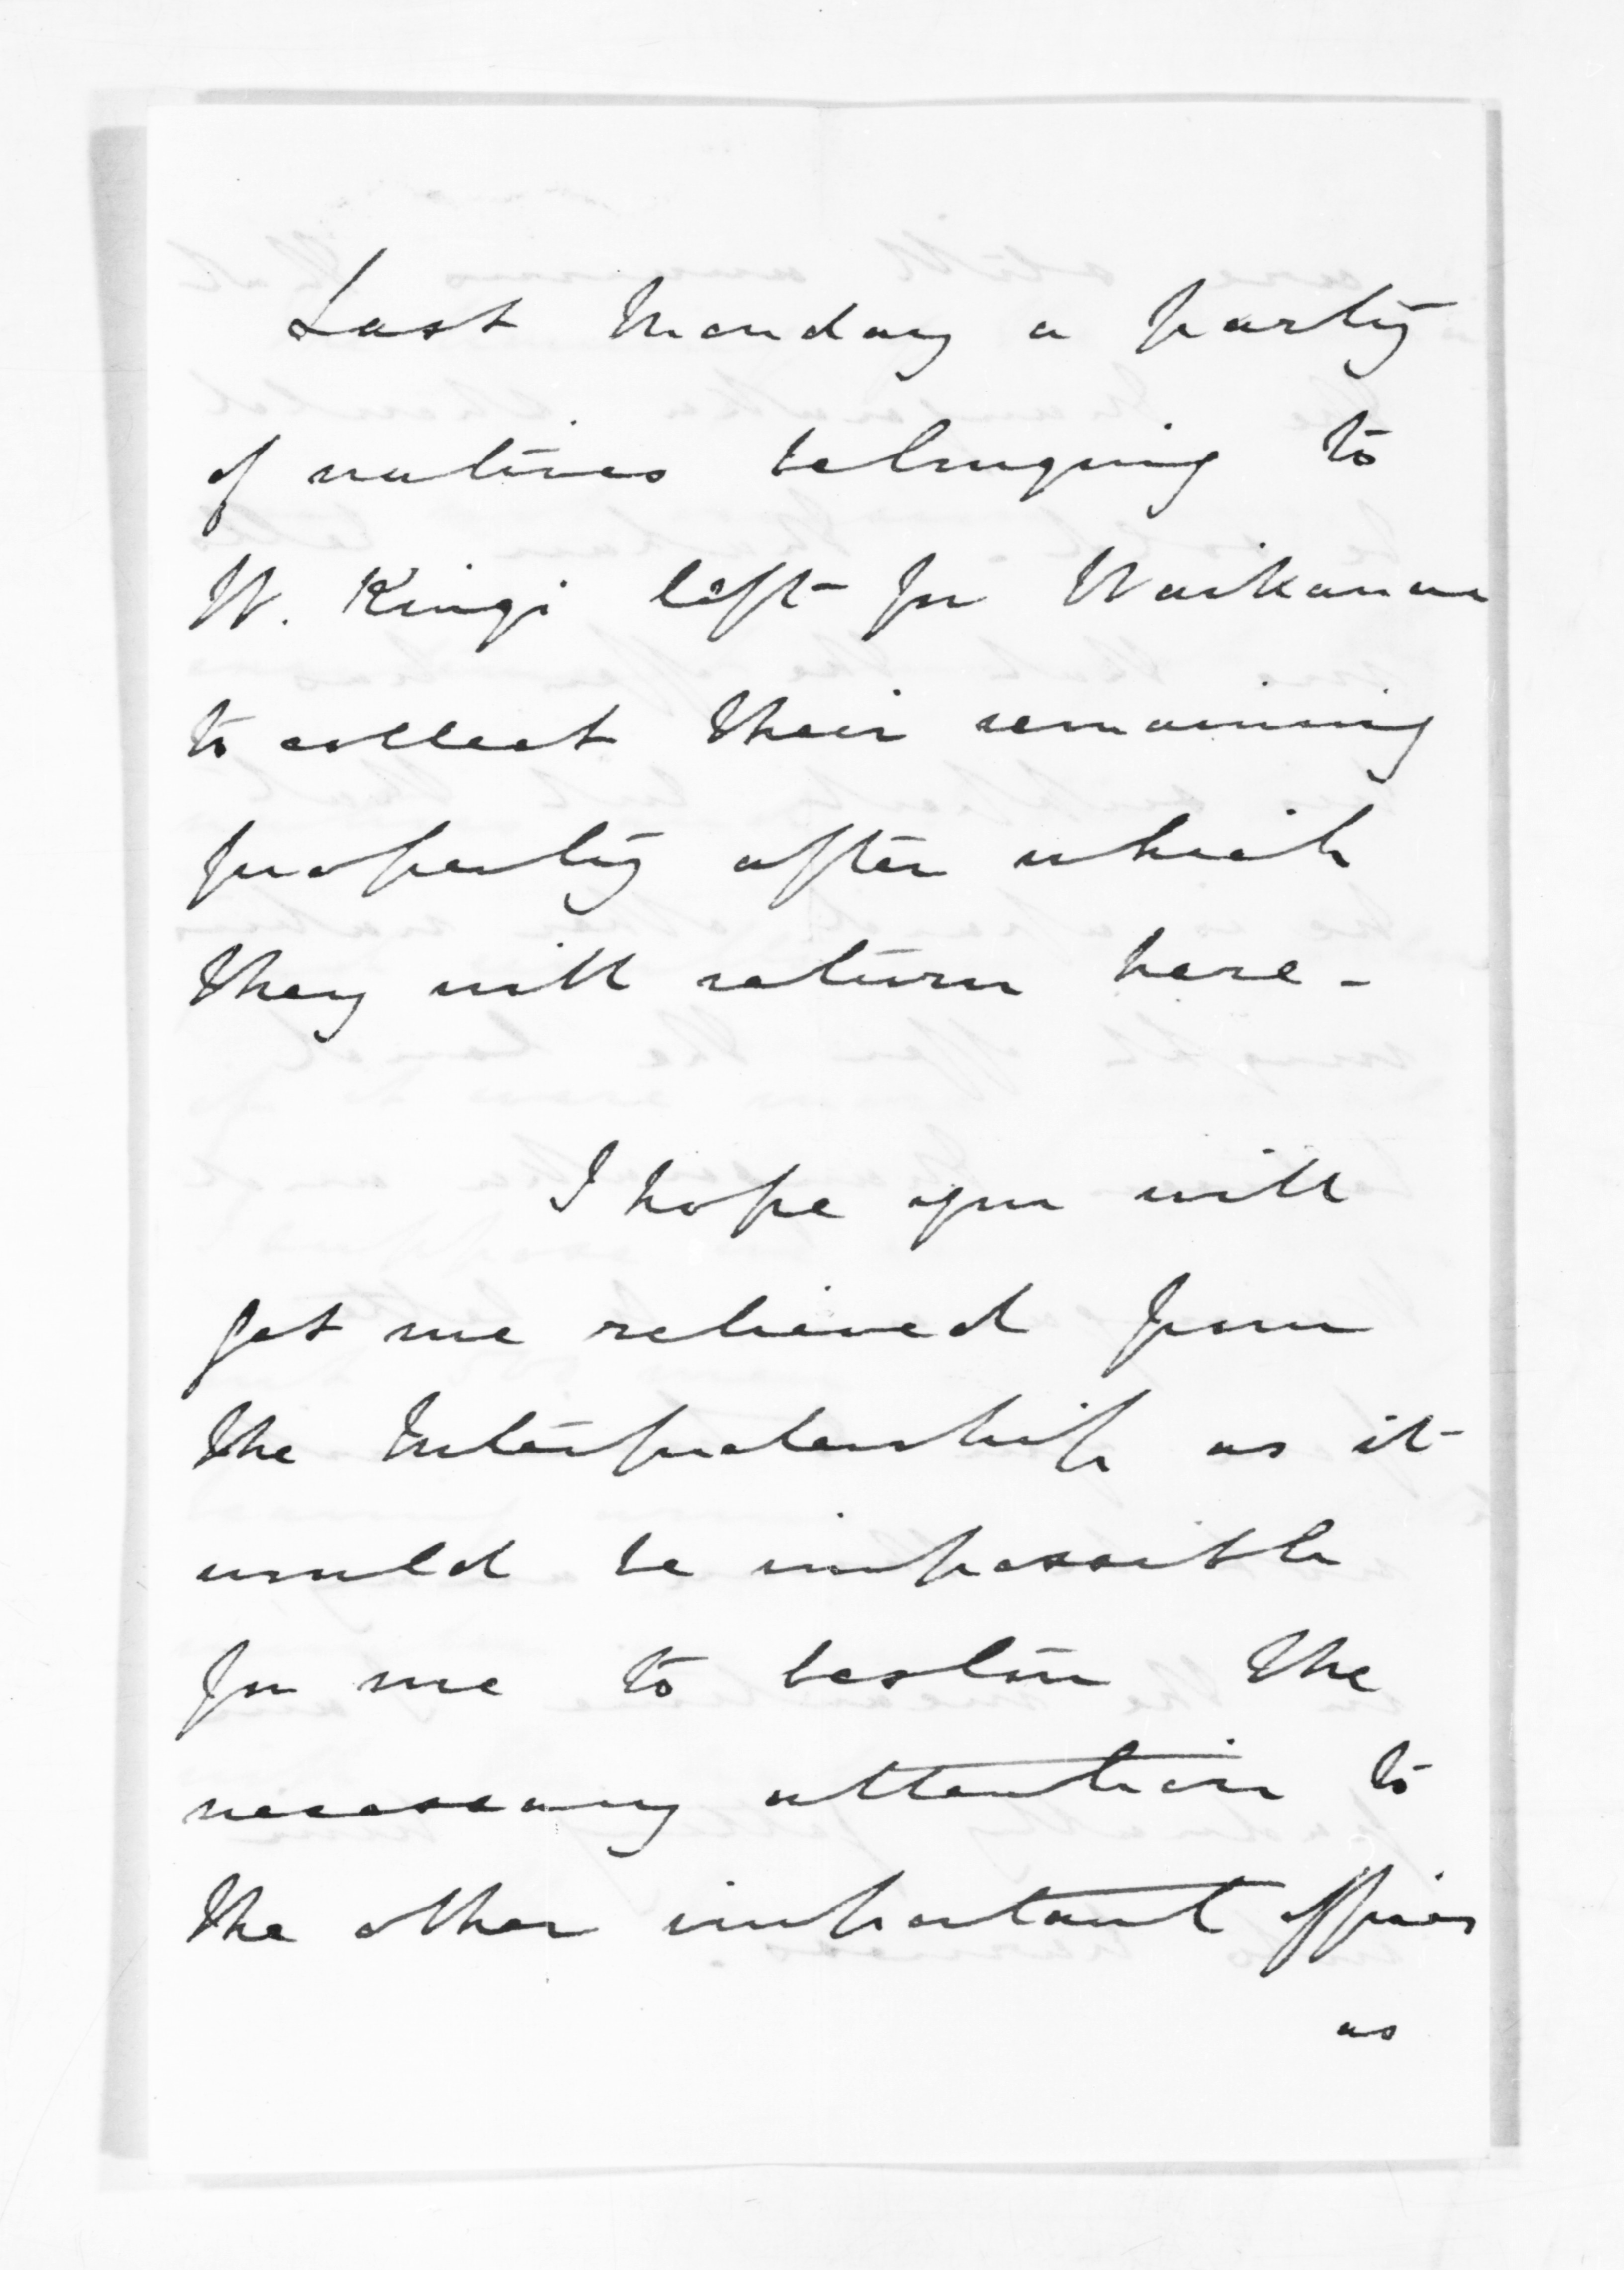 Last Monday a party
of natives belonging to
W. Kingi left for Waikanae
to collect their remaining
property after which
they will return here -
I hope you will
get me relieved from
the Interpretership as it
would be impossible
for me to bestow the
necessary attention to
the other important offices
as